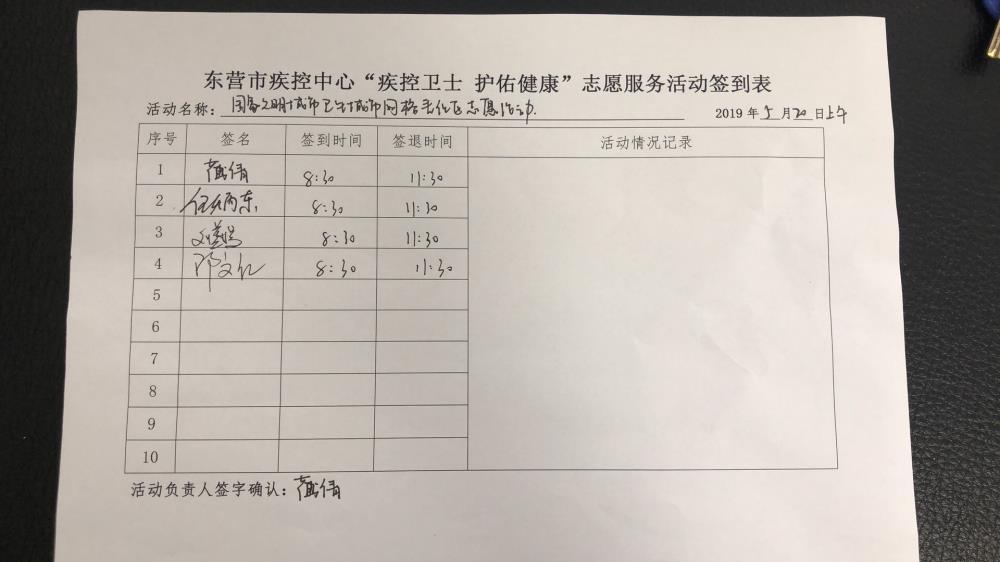 东营市疾控中心“疾控卫士 护佑健康”志愿服务活动签到表
活动名称：城市卫生城市网格志愿活动.
2019 年 5 月 20 日上午
序号 签名 签到时间 签退时间 活动情况记录
1 8:30 11:30
2 8:30 11:30
3 8:30 11:30
4 邓文 8:30 11:30
5
6
7
8
9
10
活动负责人签字确认：